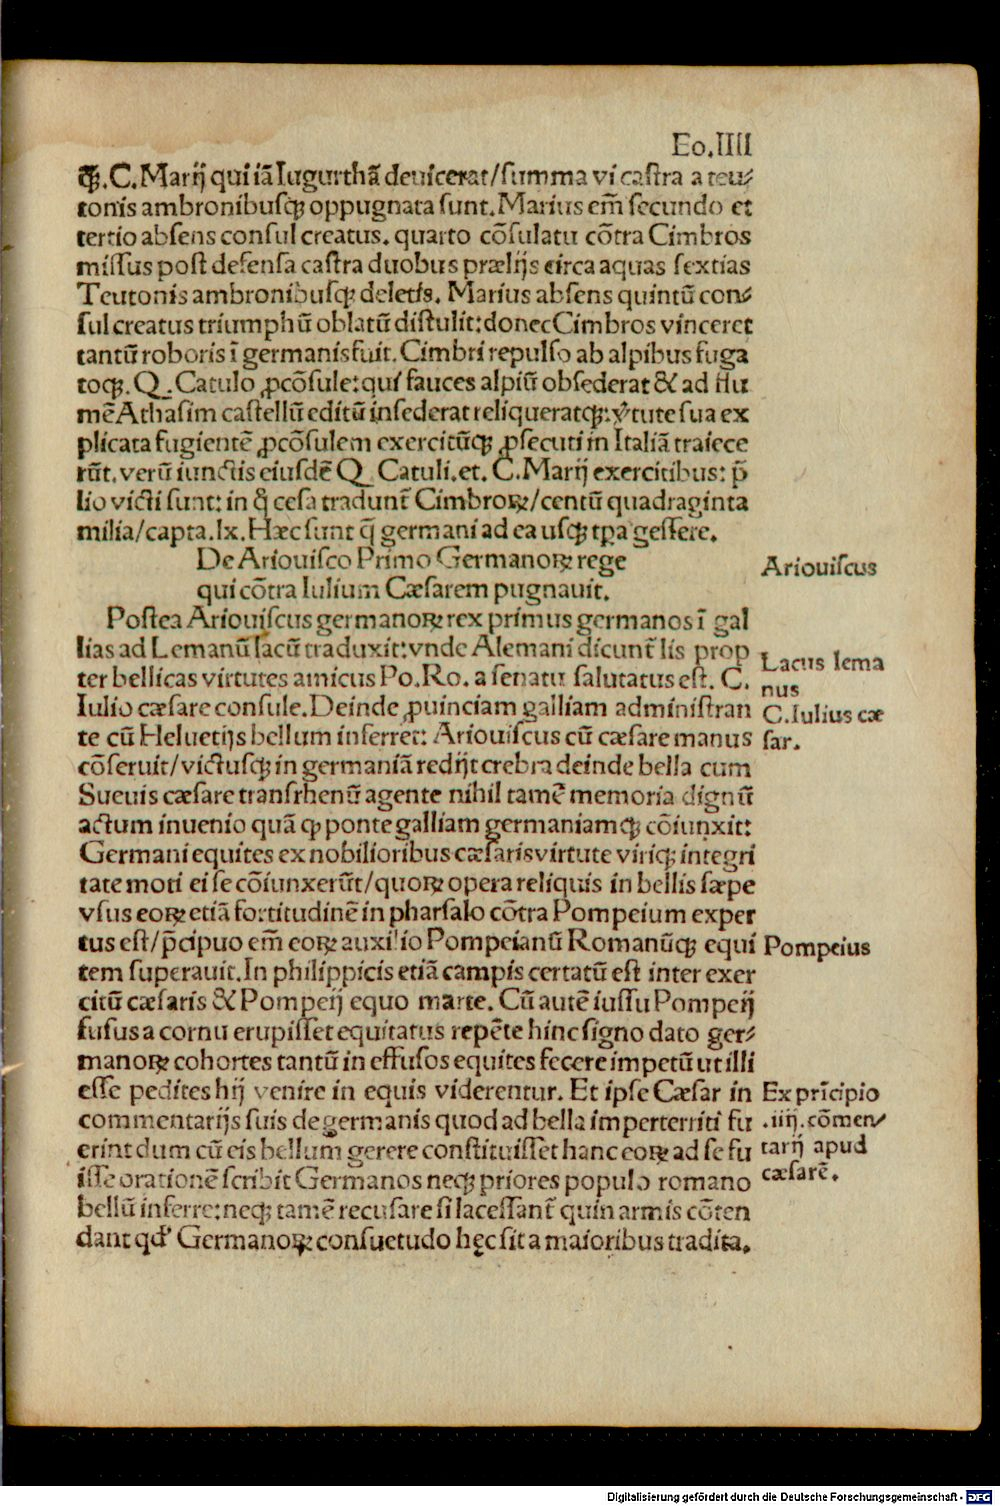 Eo.IIII
q̃ꝫ.C.Marij qui iã Iugurthã deuicerat/summa vi castra a teu⸗
tonis ambronibusqꝫ oppugnata sunt.Marius em̃ secundo et
tertio absens consul creatus.quarto cõsulatu cõtra Cimbros
missus post defensa castra duobus prælijs circa aquas sextias
Teutonis ambronibusqꝫ deletis. Marius absens quintũ con⸗
sul creatus triumphũ oblatũ distulit:donec Cimbros vinceret
tantũ roboris ĩ germanis fuit.Cimbri repulso ab alpibus fuga
toqꝫ.Q. Catulo ꝓcõsule:qui fauces alpiũ obsederat & ad flu
mẽ Athasim castellũ editũ insederat reliqueratqꝫ:v̾tute sua ex
plicata fugientẽ ꝓcõsulem exercitũqꝫ ꝓsecuti in Italiã traiece
rũt.verũ iunctis eiusdẽ Q. Catuli.et. C.Marij exercitibus: p̃
lio victi sunt:in q̊ cesa tradunt̃ Cimbroꝝ/centũ quadraginta
milia/capta.lx.Hæc sunt q̃ germani ad ea usqꝫ tꝑa gessere.
De Ariouisco Primo Germanoꝝ rege
qui cõtra Iulium Cæsarem pugnauit.
Ariouiscus
Postea Ariouiscus germanoꝝ rex primus germanos ĩ gal
lias ad Lemanũ lacũ traduxit:vnde Alemani dicunt̃ lis prop
ter bellicas virtutes amicus Po.Ro. a senatu salutatus est. C.
Iulio cæsare consule.Deinde ꝓuinciam galliam administran
te cũ Heluetijs bellum inferret: Ariouiscus cũ cæsare manus
cõseruit/victusqꝫ in germaniã redijt crebra deinde bella cum
Sueuis cæsare transrhenũ agente nihil tamẽ memoria dignũ
actum inuenio quã ꝙ ponte galliam germaniamqꝫ cõiunxit:
Germani equites ex nobilioribus cæsaris virtute viriqꝫ integri
tate moti ei se cõiunxerũt/quoꝝ opera reliquis in bellis sæpe
vsus eoꝝ etiã fortitudinẽ in pharsalo cõtra Pompeium exper
tus est/p̃cipuo em̃ eoꝝ auxilio Pompeianũ Romanũqꝫ equi
tem superauit.In philippicis etiã campis certatũ est inter exer
citũ cæsaris & Pompeij equo marte. Cũ autẽ iussu Pompeij
fusus a cornu erupisset equitatus repẽte hinc signo dato ger⸗
manoꝝ cohortes tantũ in effusos equites fecere impetũ ut illi
esse pedites hij venire in equis viderentur. Et ipse Cæsar in
commentarijs suis de germanis quod ad bella imperterriti fu
erint dum cũ eis bellum gerere constituisset hanc eoꝝ ad se fu
isse orationẽ scribit Germanos neqꝫ priores populo romano
bellũ inferre:neqꝫ tamẽ recusare si lacessant̃ quin armis cõten
dant qd' Germanoꝝ consuetudo hęc sit a maioribus tradita.
Lacus lema
nus
C.Iulius cæ
sar.
Pompeius
Ex prĩcipio
.iiij.cõmen⸗
tarij apud
cæsarẽ.
Digitalisierung gefördert durch die Deutsche Forschungsgemeinschaft - DFG